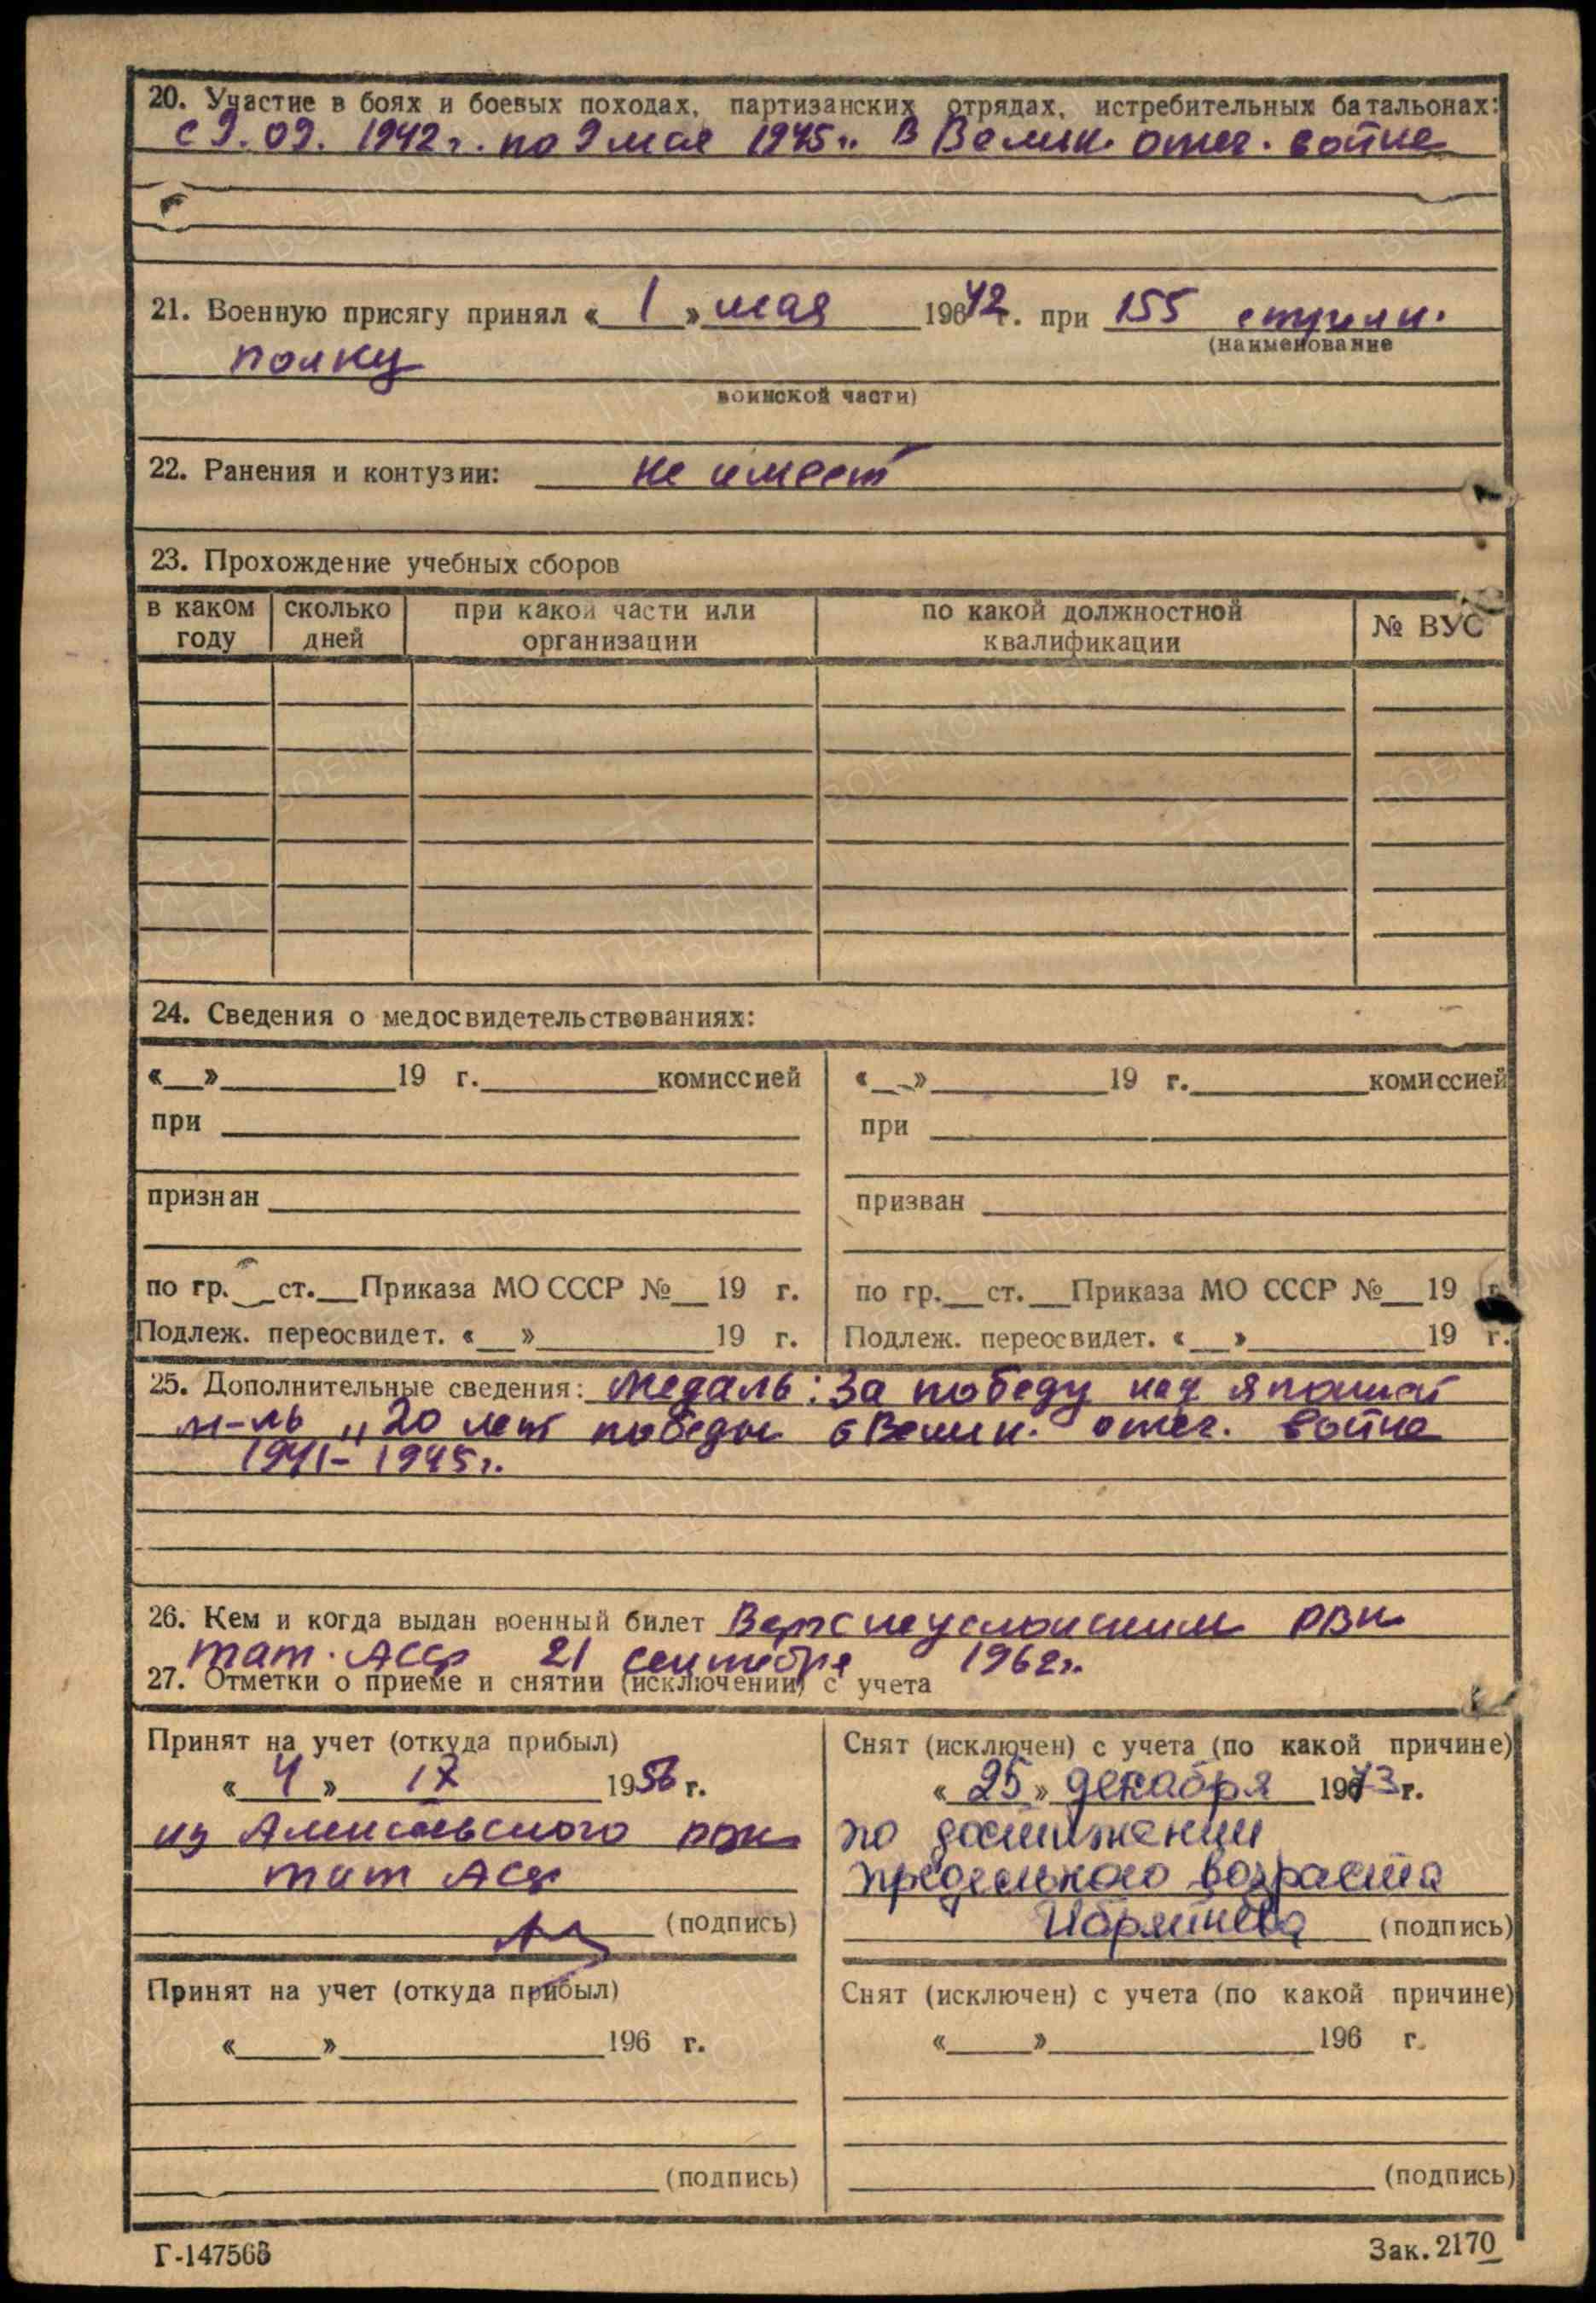 20. Участие в боях и боевых походах, партизанских отрядах, истребительных батальонах:
с 9. 09. 1942 г. по 9 мая 1945 г. В Велик. отеч. войне
21. Военную присягу принял « 1 » мая 1942 г. при 155 стрелк.
(наименование
полку
воинской части)
22. Ранения и контузии: не имеет
23. Прохождение учебных сборов
в каком году сколько дней при какой части или организации по какой должностной квалификации № ВУС
24. Сведения о медосвидетельствованиях:
«__»________19 г.________комиссией «__»________19 г.________комиссией
при при
признан призван
по гр.__ст.__Приказа МО СССР №__19 г. по гр.__ст.__Приказа МО СССР №__19 г.
Подлеж. переосвидет. «__»________19 г. Подлеж. переосвидет. «__»________19 г.
25. Дополнительные сведения: Медаль: За победу над Японией
м-ль „20 лет победы в Велик. отеч. войне
1941-1945 г.
26. Кем и когда выдан военный билет Верхнеуслонским РВК
Тат. АССР 21 сентября 1962 г.
27. Отметки о приеме и снятии (исключении) с учета
Принят на учет (откуда прибыл)
« 4 » IX 1956 г.
из РВК
Тат АССР
(подпись)
Снят (исключен) с учета (по какой причине)
« 25 » декабря 1973 г.
по достижении
предельного возраста
(подпись)
Принят на учет (откуда прибыл)
«____»________196 г.
(подпись)
Снят (исключен) с учета (по какой причине)
«____»________196 г.
(подпись)
Г-147566 Зак. 2170
ПАМЯТЬ НАРОДА
ВОЕНКОМАТЫ